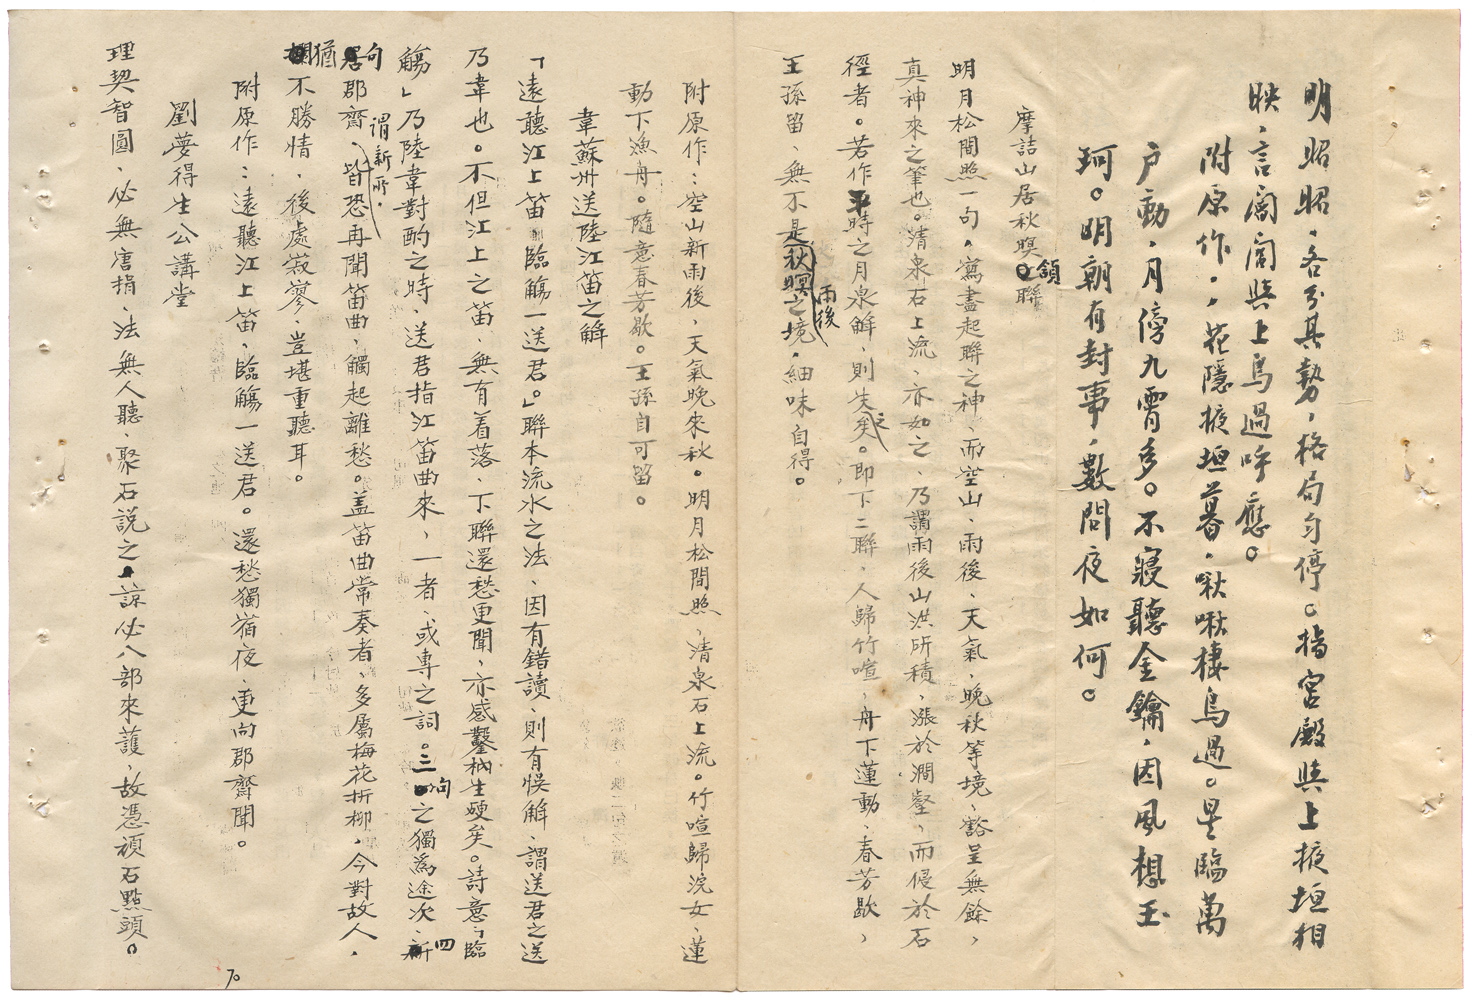 明昭昭、各分其勢，格局勻停。指宮殿與上掖垣相
映，言閶闔與上鳥過呼應。
附原作：花隱掖垣暮，啾啾棲鳥過。星臨萬
户動，月傍九霄多。不寢聽金鑰，因風想玉
珂。明朝有封事，數問夜如何。
摩詰山居秋暝領聯
明月松間照一句，寫盡起聯之神、而空山、雨後、天氣、晚秋等境、豁呈無餘，
真神來之筆也。清泉石上流、亦如之、乃謂雨後山洪所積、漲於澗壑、而侵於石
徑者。若作平時之月泉解，則失之矣。即下二聯，人歸竹喧，舟下蓮動、春芳歇，
王孫留、無不是雨後秋暝之境，細味自得。
附原作：空山新雨後、天氣晚來秋。明月松間照、清泉石上流。竹喧歸浣女、蓮
動下漁舟。隨意春芳歇。王孫自可留。
韋蘇州送陸江笛之解
「遠聽江上笛，臨觴一送君。」聯本流水之法、因有錯讀、則有悞解、謂送君之送
乃韋也。不但江上之笛、無有着落、下聯還愁更聞、亦感鑿枘生硬矣。詩意「臨
觴」乃陸韋對酌之時、送君指江笛曲來，一者、或專之詞。三句之獨為途次、四
句郡齋、謂新所，皆恐再聞笛曲，觸起離愁。蓋笛曲常奏者、多屬梅花折柳，今對故人，
猶不勝情、後處寂寥、豈堪重聽耳。
附原作：遠聽江上笛、臨觴一送君。還愁獨宿夜、更向郡齋聞。
劉夢得生公講堂
理契智圓、必無唐捐、法無人聽、聚石說之，諒必八部來護、故憑頑石點頭。
70